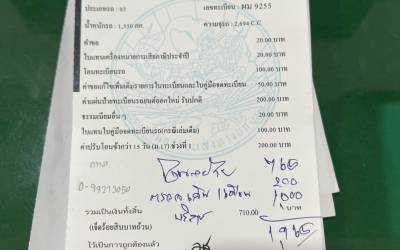 ประเภทรถ : 03 เลขทะเบียน : HM 9255
น้ำหนักรถ : 1,550 กก. ความจุรถ : 2,694 C.C
ค่าขอ 20.00 บาท
ใบแทนเครื่องหมายการเสียภาษีประจำปี 20.00 บาท
โอนทะเบียนรถ 100.00 บาท
ค่าขอแก้ไขเพิ่มเติมรายการในทะเบียนและใบคู่มือจดทะเบียน 50.00 บาท
ค่าแผ่นป้ายทะเบียนรถยนต์ออกใหม่ รับปกติ 200.00 บาท
ธรรมเนียมอื่น ๆ 20.00 บาท
ใบแทนใบคู่มือจดทะเบียนรถ(กรณีเล่มเต็ม) 100.00 บาท
ค่าปรับโอนช้ากว่า 15 วัน (ม.17) ช่วงที่ 1 200.00 บาท
765
200
1000
รวมเป็นเงินทั้งสิ้น 710.00 บาท
(เจ็ดร้อยสิบบาทถ้วน) 1965
ไว้เป็นการถูกต้องแล้ว